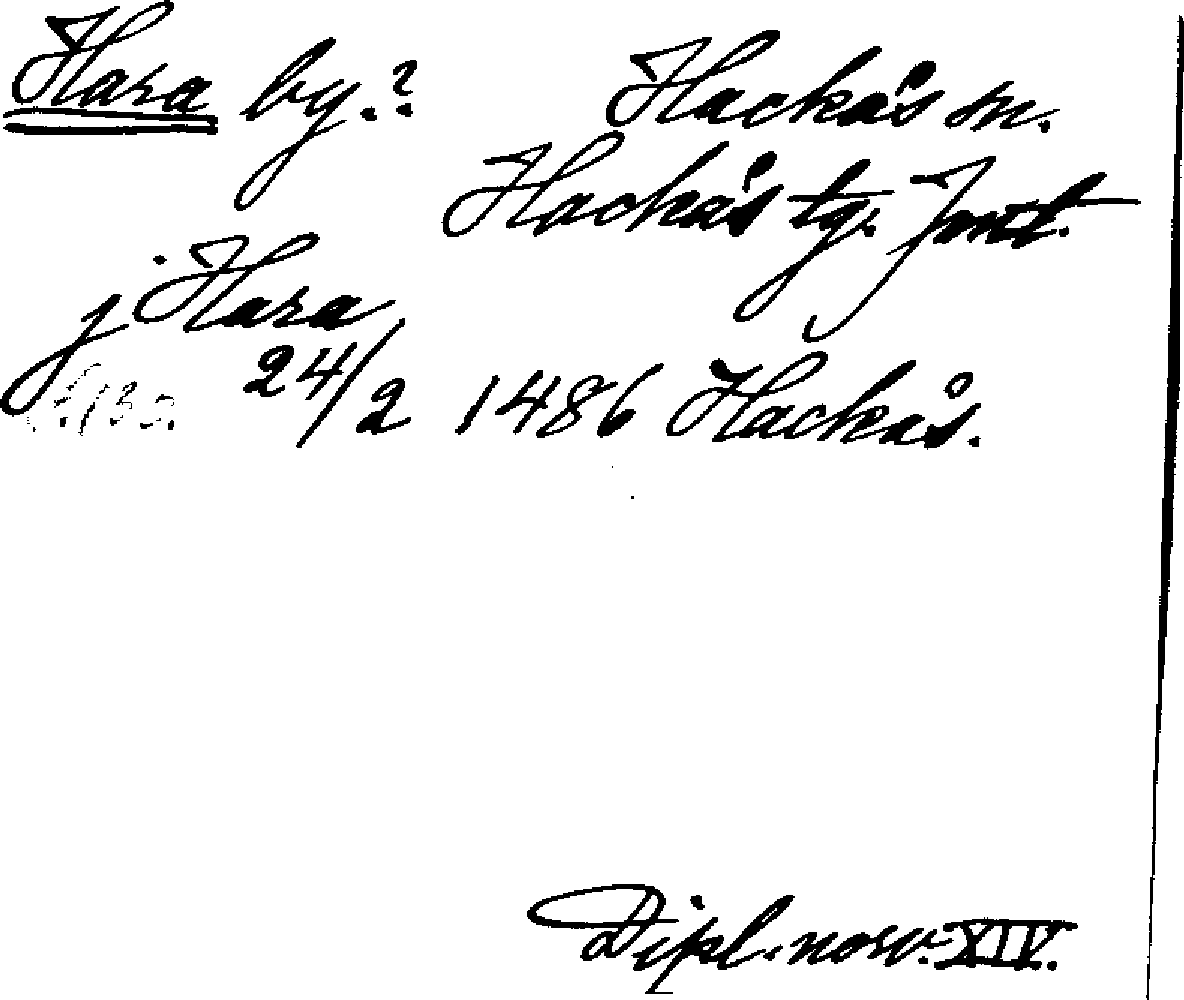 Hara by.? Hackås sn.
Hackås tg. Jmtl.
j Hara
24/2 1486 Hackås.
Dipl. norv. XIV.